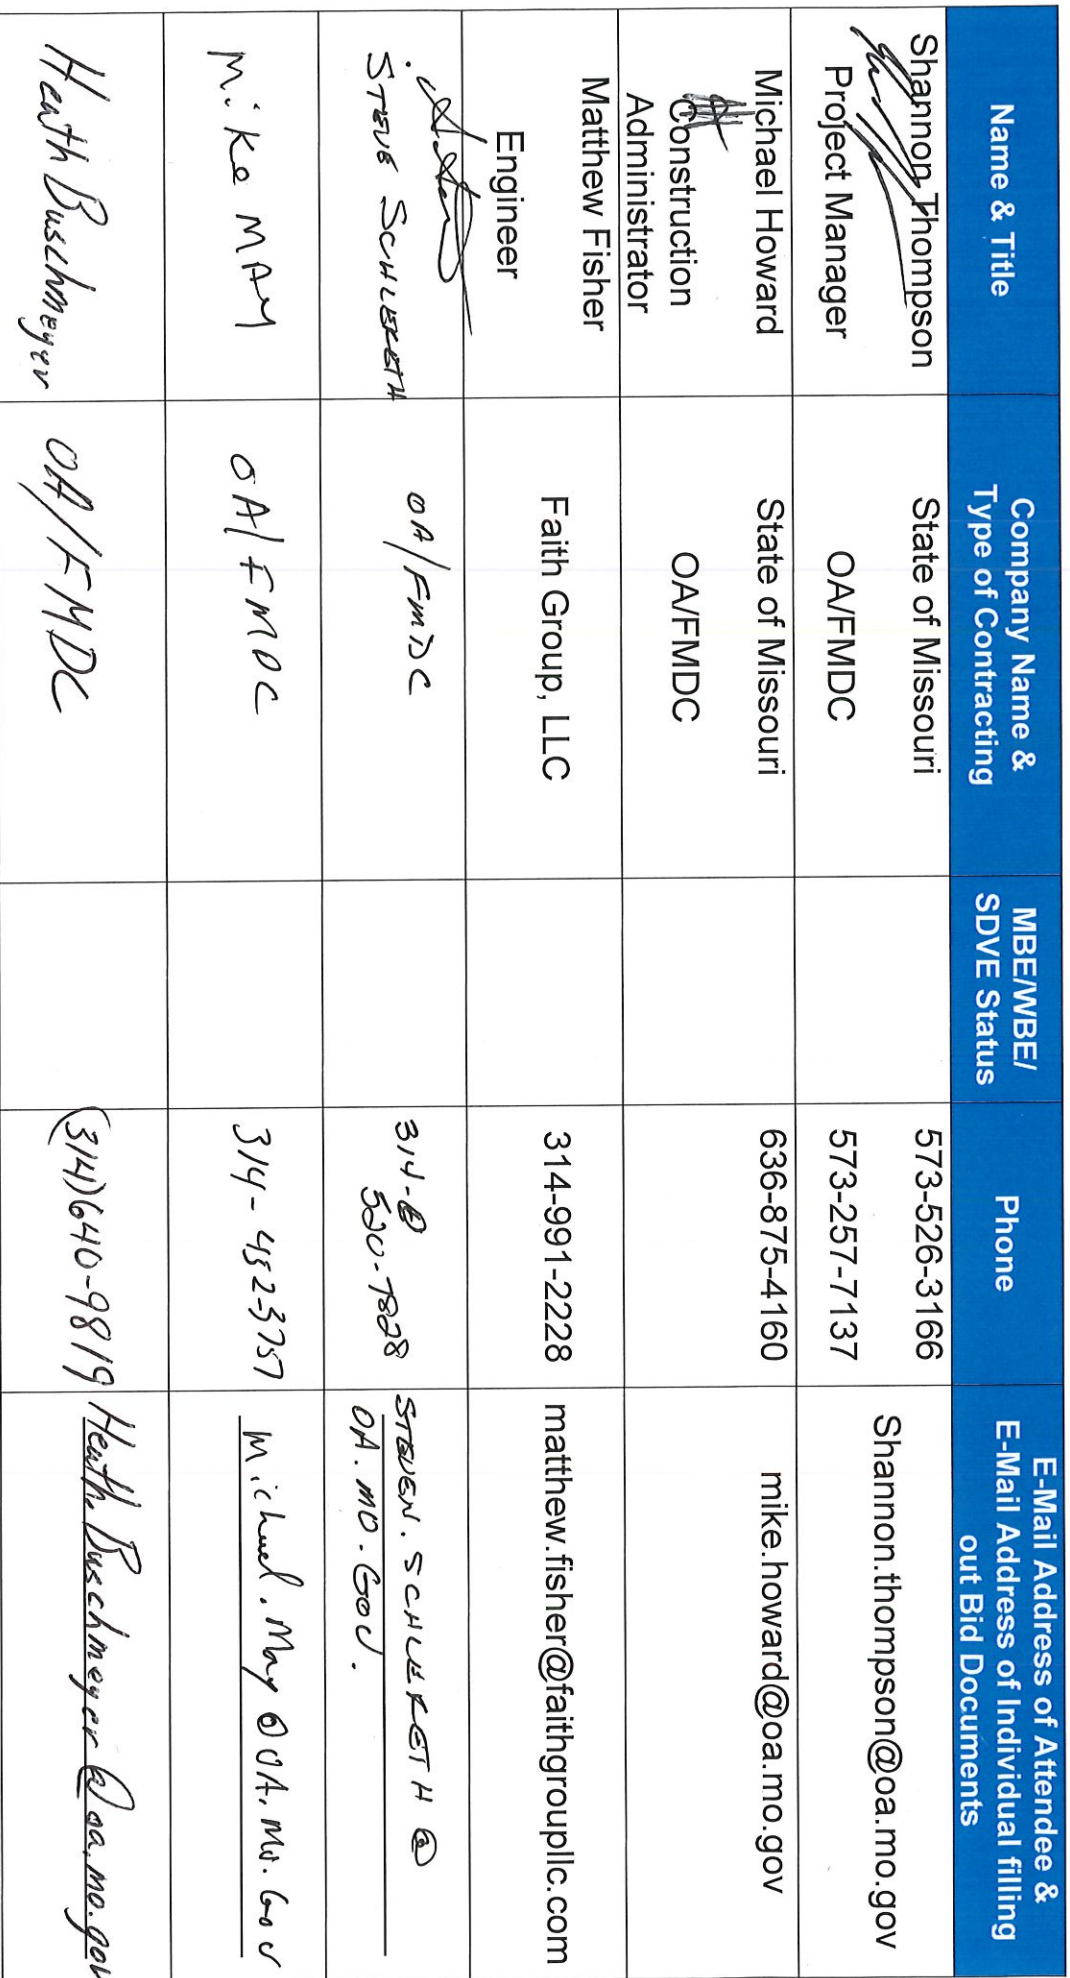 Name & Title
Company Name &
Type of Contracting
MBE/WBE/
SDVE Status
Phone
E-Mail Address of Attendee &
E-Mail Address of Individual filling
out Bid Documents
Shannon Thompson
Project Manager
State of Missouri
OA/FMDC
573-526-3166
573-257-7137
Shannon.thompson@oa.mo.gov
Michael Howard
Construction
Administrator
State of Missouri
OA/FMDC
636-875-4160
mike.howard@oa.mo.gov
Matthew Fisher
Engineer
Faith Group, LLC
314-991-2228
matthew.fisher@faithgroupllc.com
STEVE SCHLERETH
OA/FMDC
314-
520-7828
STEVEN.SCHLERETH@
OA.MO.GOV.
Mike MAY
OA/FMDC
314-452-3757
Michael.May@OA.Mo.Gov
Heath Buschmeyer
OA/FMDC
(314)640-9819
Heath.Buschmeyer@oa.mo.gov